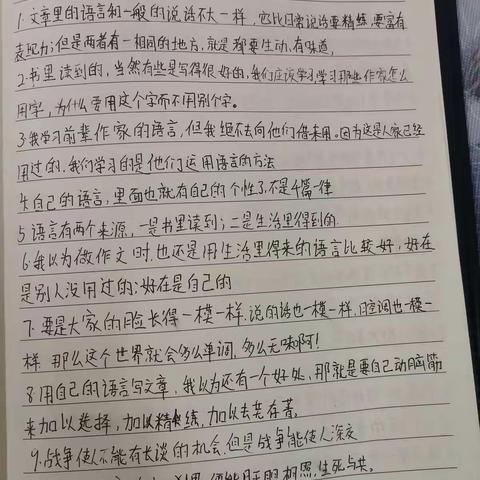 1.文章里的语言和一般的说话不大一样,它比日常说话要精练,要富有
表现力;但是两者有一相同的地方,就是都要生动、有味道,
2.书里读到的,当然有些是写得很好的,我们应该学习学习那些作家怎么
用字,为什么要用这个字而不用别个字。
3.我学习前辈作家的语言,但我绝不去向他们借来用。因为这是人家已经
用过的,我们学习的是他们运用语言的方法
4.自己的语言,里面也就有自己的个性了,不是千篇一律
5.语言有两个来源,一是书里读到;二是生活里得到的.
6.我以为做作文时,也还是用生活里得来的语言比较好,好在
是别人没用过的;好在是自己的
7.要是大家的脸长得一模一样,说的话也一模一样,腔调也一模一
样.那么这个世界就会多么单调,多么无聊啊!
8.用自己的语言写文章,我以为还有一个好处,那就是要自己动脑筋
来加以选择,加以精练,加以去芜存菁。
9.战争使人不能有长谈的机会,但是战争能使人深交
肝胆相照,生死与共。